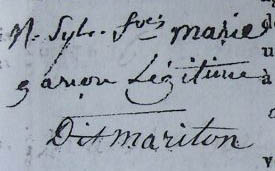 N. Sylv. fçois marie
garçon Légitime
Dit mariton